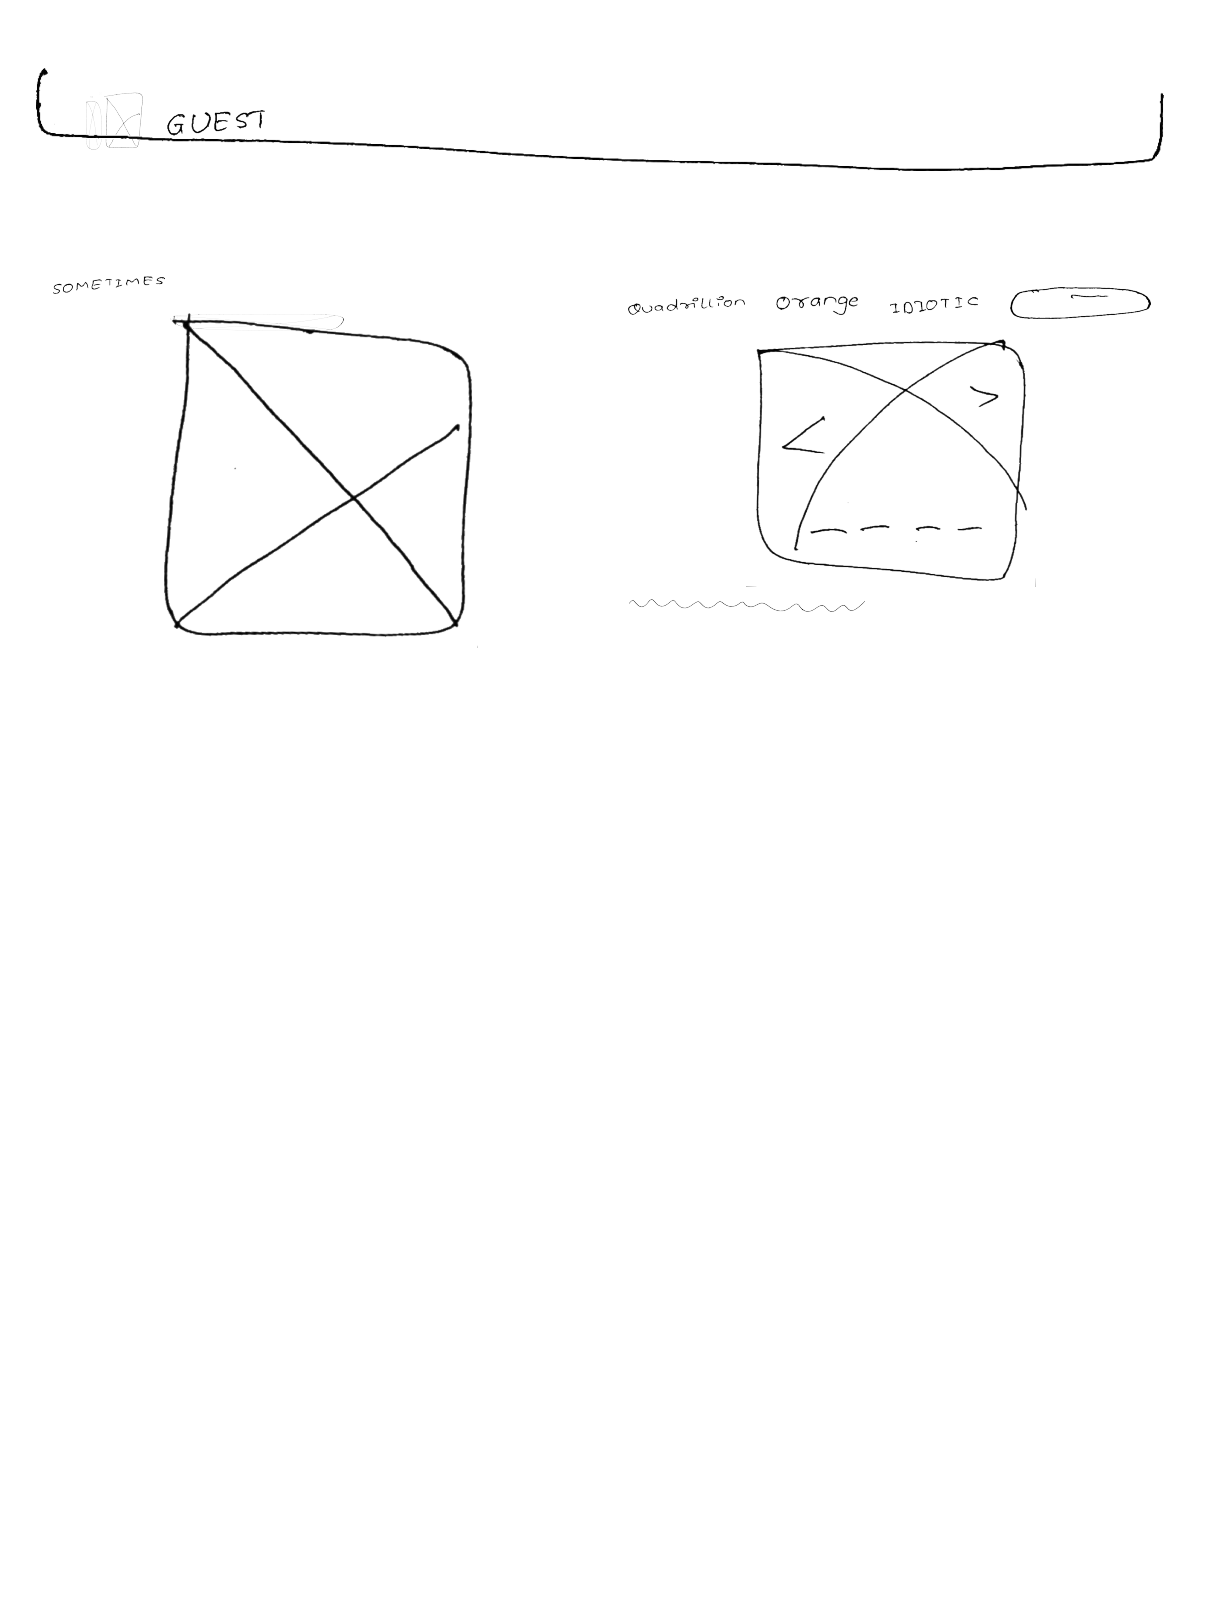 GUEST
SOMETIMES
Quadrillion Orange IDIOTIC